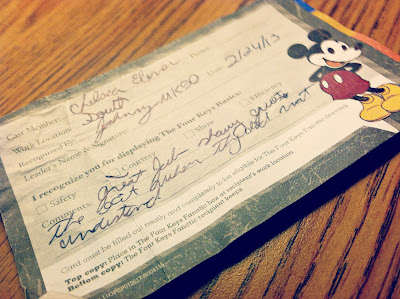 Cast Member: Chelsea
Work Location: South
Recognized By: Johnny MKSO Date: 2/24/13
Leader's Name & Signature:
I recognize you for displaying The Four Keys Basics:
Safety Courtesy Show Efficiency
Comments: Great Job great
the they did not
understand
Card must be filled out neatly and completely to be eligible for The Four Keys Fanatic drawing
Top copy: Place in The Four Keys Fanatic box at recipient's work location
Bottom copy: The Four Keys Fanatic recipient keeps